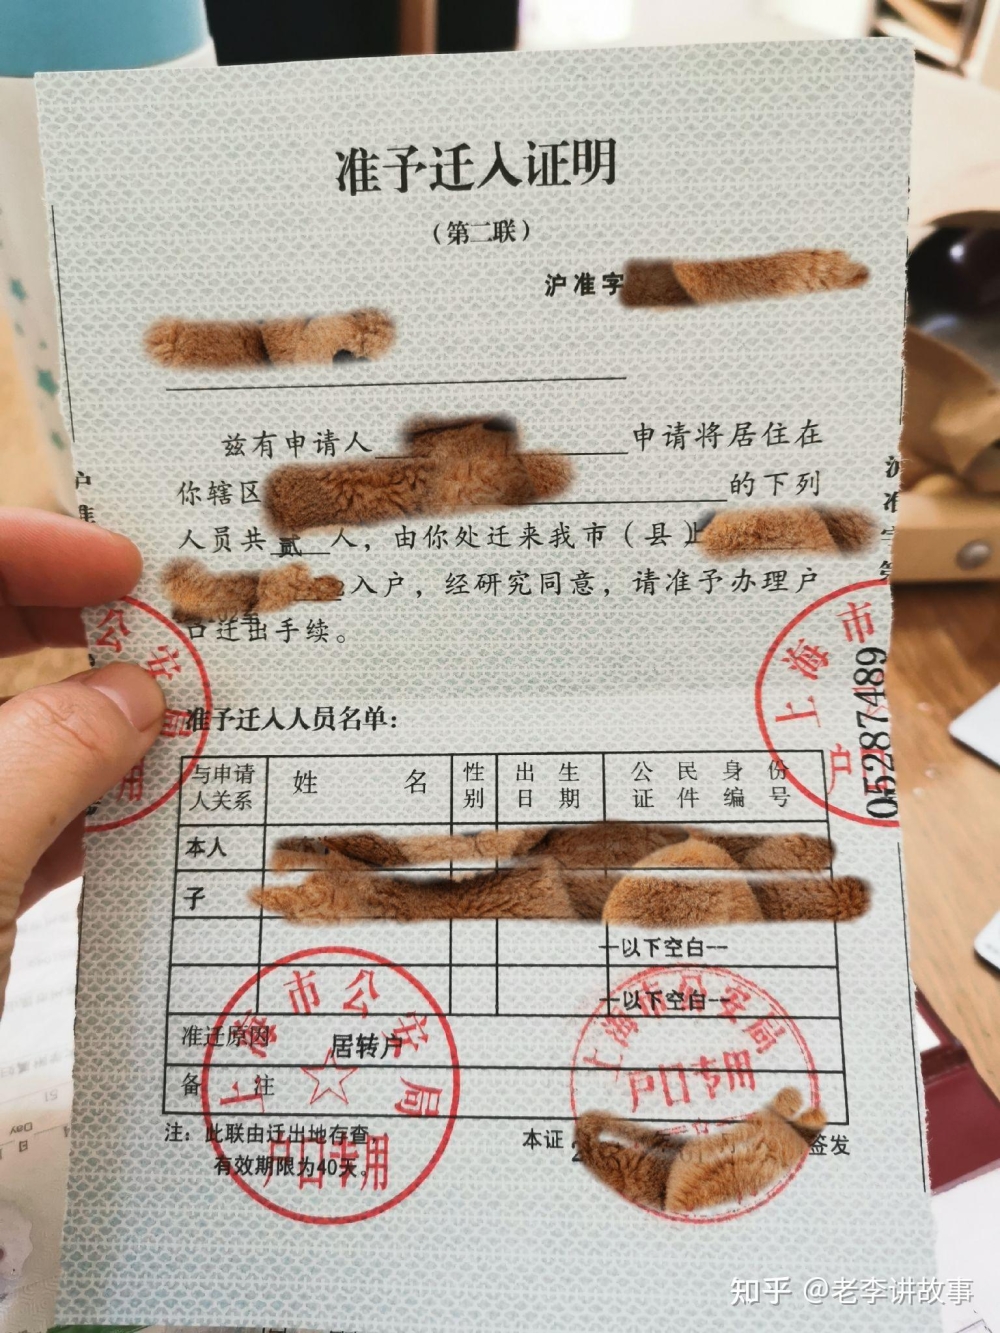 准予迁入证明
（第二联）
沪准字
兹有申请人 申请将居住在
你辖区 的下列
人员共 贰 人，由你处迁来我市（县）
入户，经研究同意，请准予办理户
口迁出手续。
准予迁入人员名单：
与申请人关系 姓名 性别 出生日期 公民身份证件编号
本人
子
—以下空白—
—以下空白—
准迁原因 居转户
备注
注：此联由迁出地存查
有效期限为40天。
本证 签发
上海市公安局
户口专用
上海市公安局
户口专用
上海市
户
05287489
公安局
用
知乎 @老李讲故事